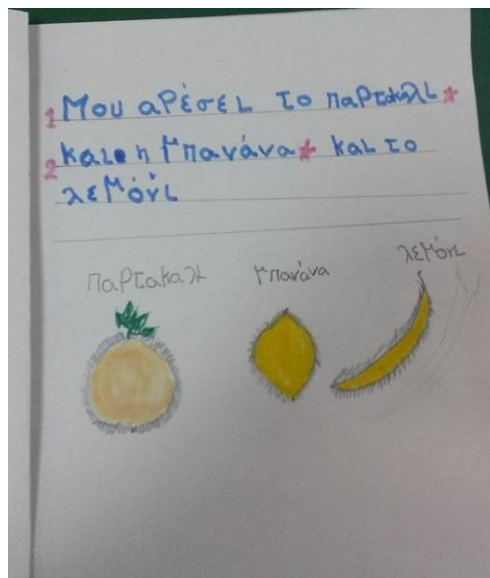 1 Μου αρέσει το παρτακαλι *
2 και η μπανάνα * και το
λεμόνι
παρτακαλι μπανάνα λεμόνι